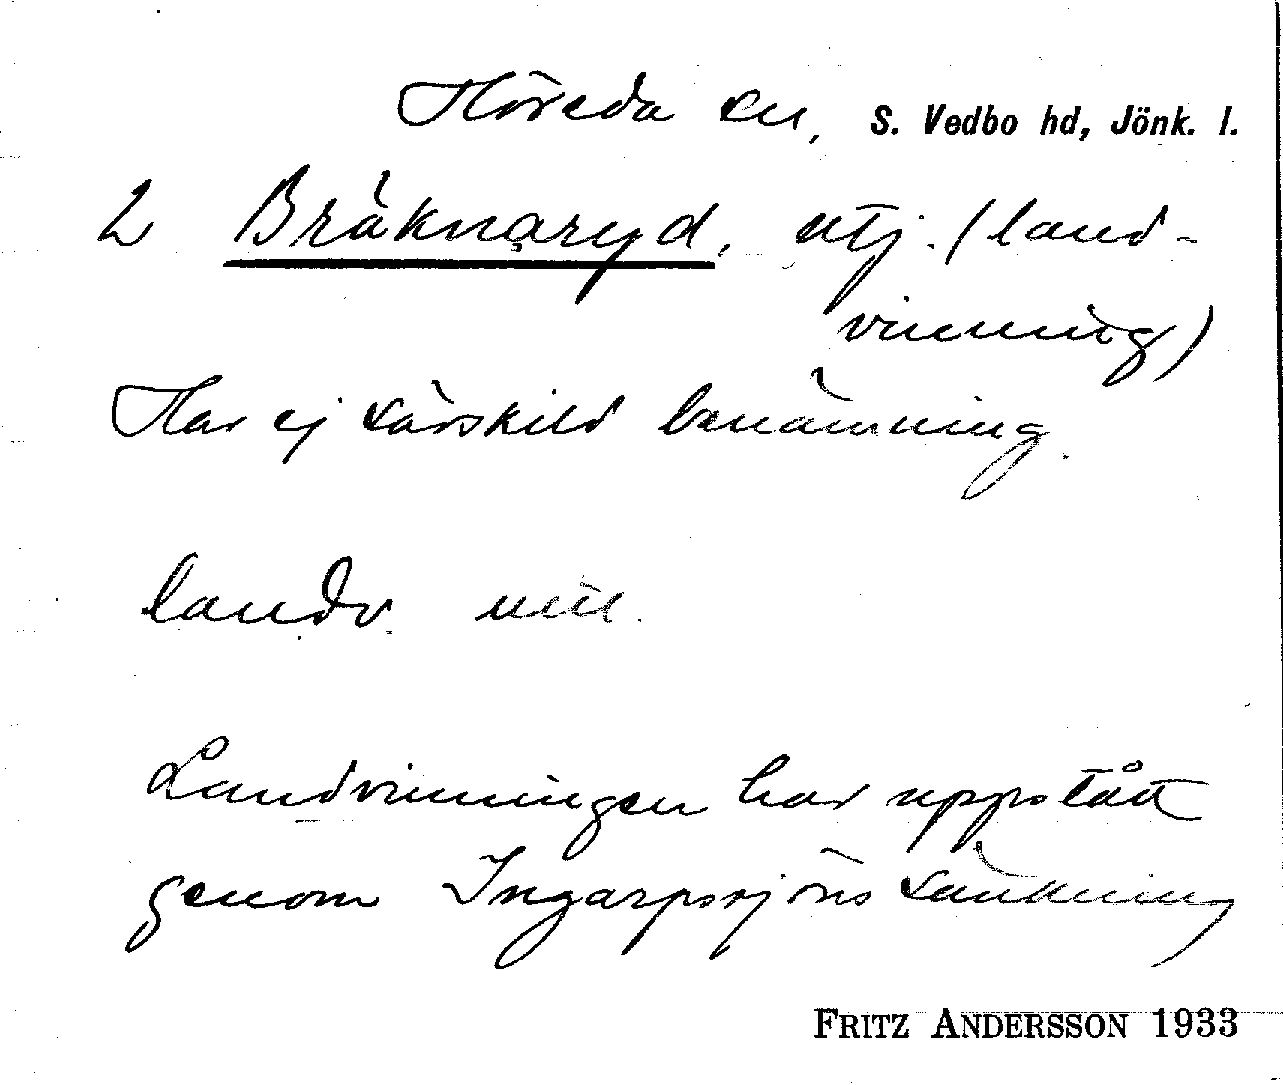 Höreda sn, S. Vedbo hd, Jönk. l.
2 Bräknaryd, utj. (land-
vinning)
Har ej särskild benämning.
landv. 
Landvinningen har uppstått
genom Ingarpssjöns sänkning
FRITZ ANDERSSON 1933